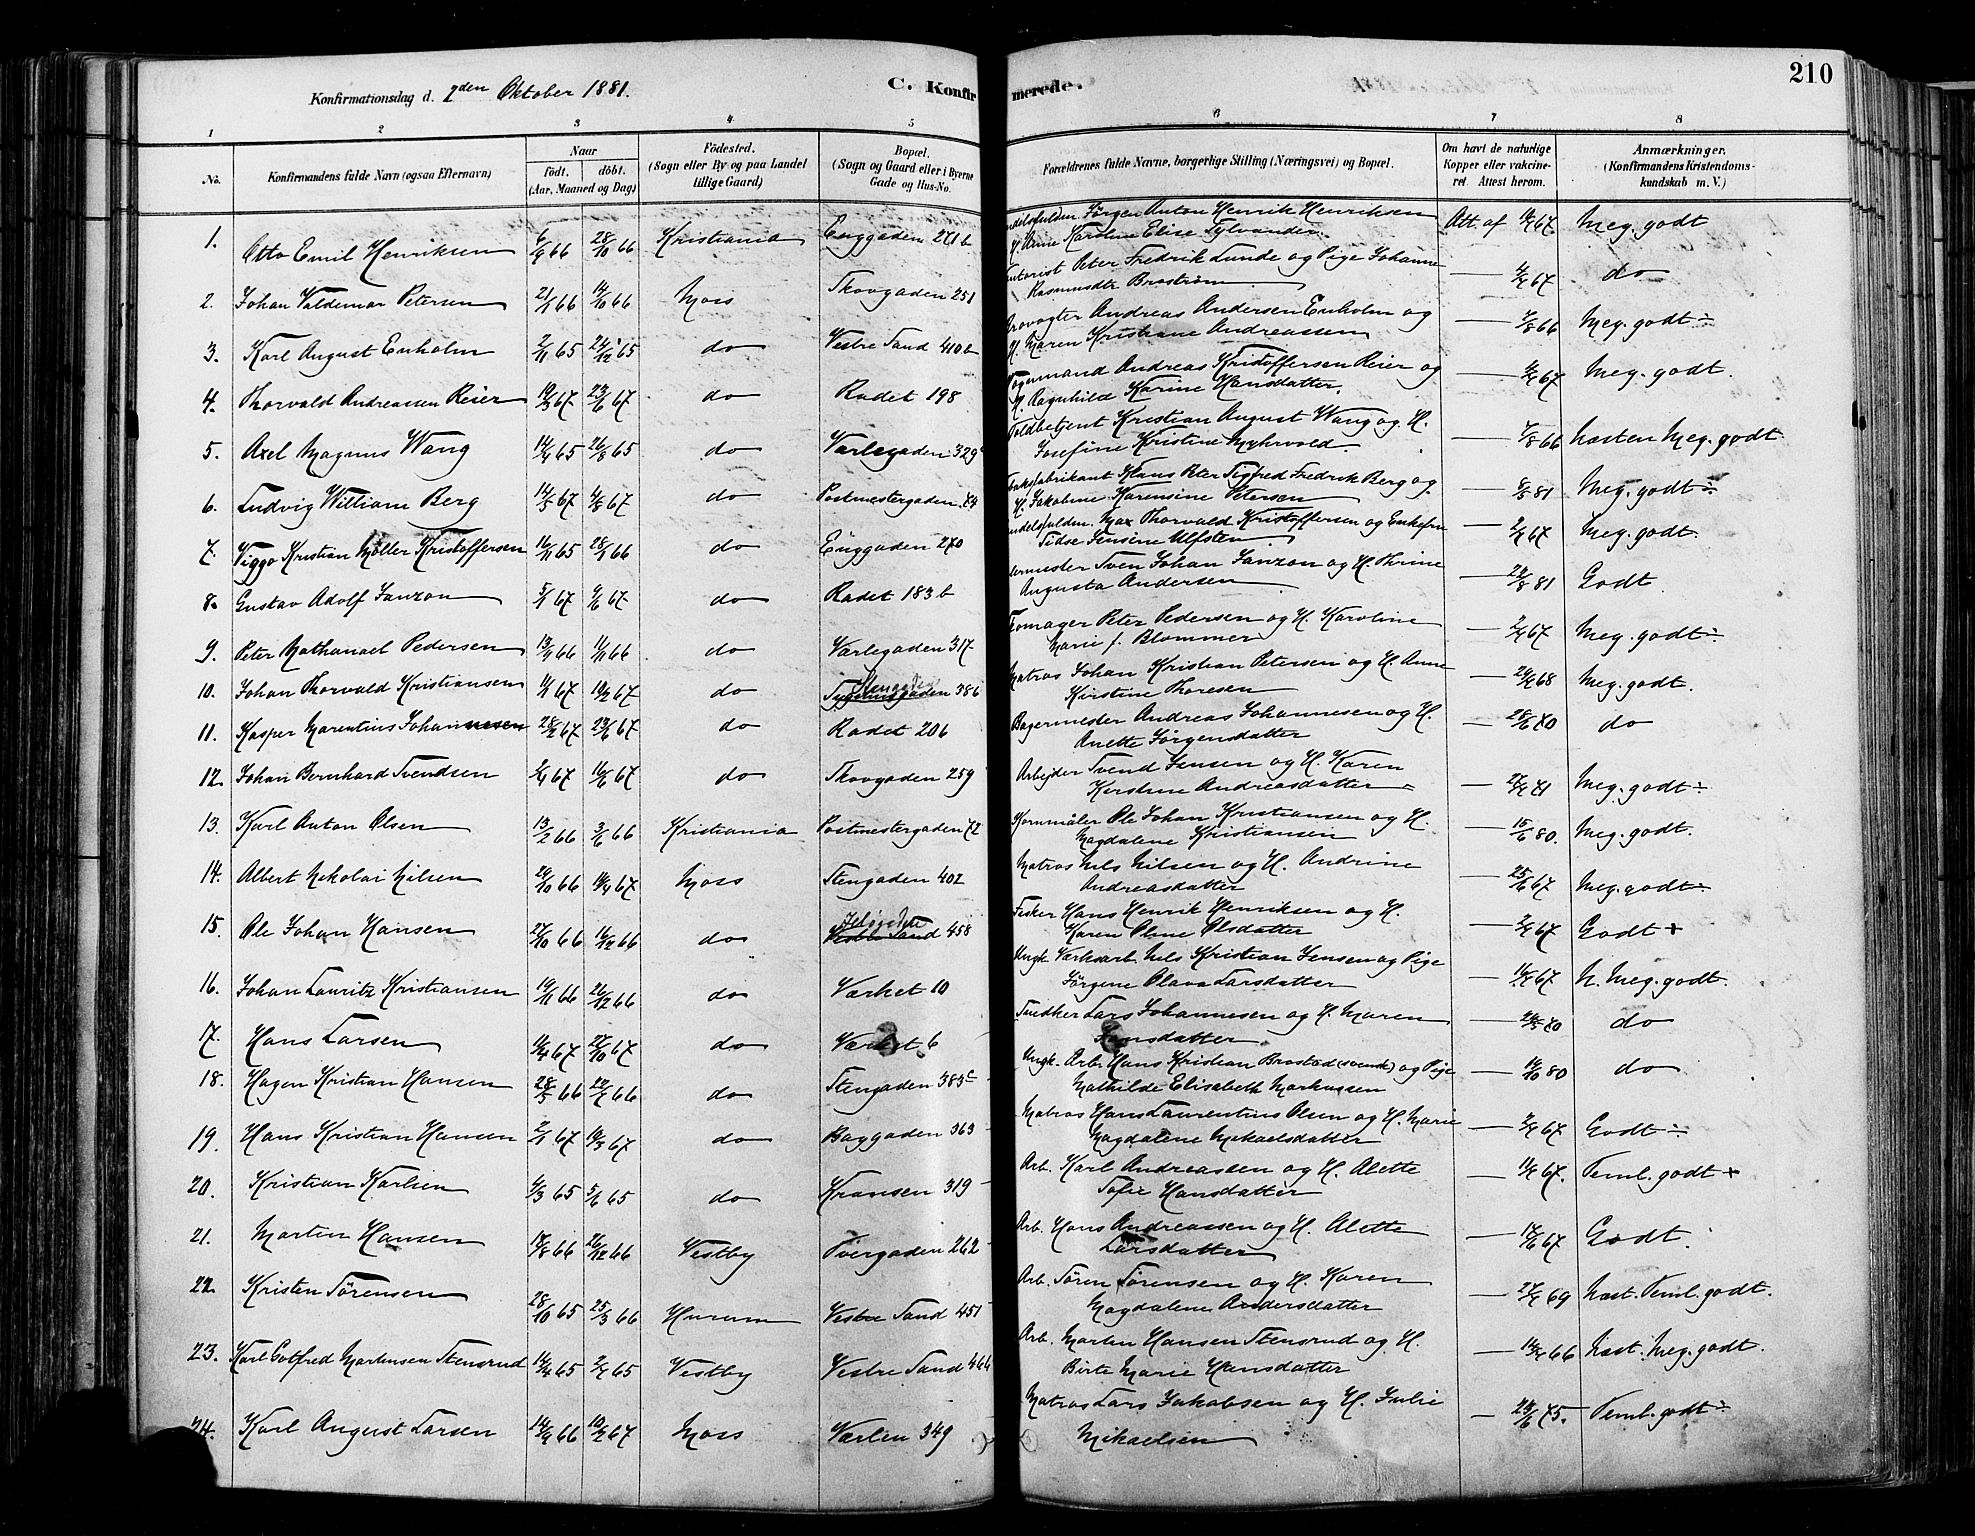 Konfirmationsdag d. 2den Oktober 1881. C. Konfirmerede. 210
1 2 3 4 5 6 7 8
No. Konfirmandens fulde Navn (ogsaa Efternavn) Naar födt. döbt. (Aar, Maaned og Dag) Födested. (Sogn eller By og paa Landet tillige Gaard) Bopæl. (Sogn og Gaard eller i Byerne Gade og Hus-No. Forældrenes fulde Navne, borgerlige Stilling (Næringsvei) og Bopæl. Om havt de naturlige Kopper eller vakcineret. Attest herom. Anmærkninger. (Konfirmandens Kristendomskundskab m. V.)
Jörgen Anton Henrik Henriksen
1. Otto Emil Henriksen 6/9 66 28/10 66 Kristiania Enggaden 271 b H. Anne Karoline Elise Sylvander Att. af 67 Meg. godt
Peter Fredrik Lunde og Pige Johanne
2. Johan Valdemar Petersen 21/1 66 14/10 66 Moss Skovgaden 251 Rasmusdtr Broström — 67 do
Andreas Andersen Enholm og
3. Karl August Enholm 2/11 65 24/12 65 do Vestre Sand 410 b H. Maren Kristiane Andreassen — 66 Meg. godt ÷
Andreas Kristoffersen Reier og
4. Thorvald Andreassen Reier 19/3 67 23/6 67 do Radet 198 H. Ragnhild Karine Hansdatter — 67 Meg. godt.
Toldbetjent Kristian August Wang og H.
5. Axel Magnus Wang 14/4 65 26/8 65 do Varlegaden 329 Josefine Kristine Myhrvold — 7/8 66 Næsten Meg. godt
Hans Peter Sigfred Fredrik Berg og
6. Ludvig William Berg 14/5 67 4/8 67 do Postmestergaden 74 H. Jakobine Karensine Petersen — 8/8 81 Meg. godt ÷
Max Thorvald Kristoffersen og Enkefru
7. Viggo Kristian Möller Kristoffersen 16/11 65 28/1 66 do Enggaden 270 Tidse Jensine Ulfsten — 67 Meg. godt.
Sven Johan Janzon og H. Thrine
8. Gustav Adolf Janzon 5/1 67 9/6 67 do Radet 183 b Augusta Andersen — 81 Godt
Skomager Peter Pedersen og H. Karoline
9. Peter Nathanael Pedersen 13/9 66 11/11 66 do Varlegaden 317 Marie f. Blommer — 67 Meg. godt ÷
Matros Johan Kristian Petersen og H. Anne
10. Johan Thorvald Kristiansen 11/1 67 10/2 67 do Stenggden 386 Kirstine Thoresen — 68 Meg. godt.
Bagermester Andreas Johannesen og H.
11. Kasper Marentius Johannesen 28/2 67 23/6 67 do Radet 206 Anette Jörgensdatter — 28/6 70 do
Arbejder Svend Jensen og H. Karen
12. Johan Bernhard Svendsen 2/4 67 16/6 67 do Skovgaden 259 Kirstine Andreasdatter — 71 Meg. godt ÷
Kornmåler Ole Johan Kristiansen og H.
13. Karl Anton Olsen 13/2 66 3/6 66 Kristiania Postmestergaden 72 Magdalene Kristiansen — 15/6 80. Meg. godt.
Matros Nils Nilsen og H. Andrine
14. Albert Nikolai Nilsen 29/10 66 19/4 67 Moss Stengaden 402 Andreasdatter — 25/6 67 Meg. godt ÷
Fisker Hans Henrik Henriksen og H.
15. Ole Johan Hansen 27/10 66 16/12 66 do Vestre Sand 458 Karen Oline Olsdatter — 67 Godt +
Ungk. Værksarb. Nils Kristian Jensen og Pige
16. Johan Lauritz Kristiansen 19/11 66 26/12 66 do Værket 10 Jörgine Olava Larsdatter — 67 N. Meg. godt.
Snedker Lars Johannesen og H. Maren
17. Hans Larsen 11/4 67 27/10 67 do Værket 6 Jonsdatter — 70 do
Ungk. Arb. Hans Kristian Brostad (svensk) og Pige
18. Hagen Kristian Hansen 28/5 66 22/7 66 do Stengaden 383 c Mathilde Elisabeth Markussen — 80 do
Matros Hans Laurentius Olsen og H. Marie
19. Hans Kristian Hansen 2/1 67 10/3 67 do Baggaden 363 Magdalene Mikaelsdatter — 67 Godt ÷
Arb. Karl Andreassen og H. Alette
20. Kristian Karlsen 4/3 65 5/6 65 do Kransen 319 Sofie Hansdatter — 67. Teml. godt +
Arb. Hans Andreassen og H. Alette
21. Morten Hansen 17/8 66 26/12 66 Vestby Tvergaden 262 Larsdatter — 67 Godt.
Arb. Sören Sörensen og H. Karen
22. Kristen Sörensen 28/10 65 25/3 66 Hurum Vestre Sand 451 Magdalene Andersdatter — 69 Næst. Teml. godt.
Arb. Morten Hansen Stensrud og H.
23. Karl Gotfred Martinsen Stensrud 14/4 65 65 Vestby Vestre Sand 466 Birte Marie Hansdatter — 66 Næst. Meg. godt.
Matros Lars Jakobsen og H. Julie
24. Karl August Larsen 14/9 66 10/2 67 Moss Værlen 349 Mikaelsen — 23/6 75. Teml. godt ÷